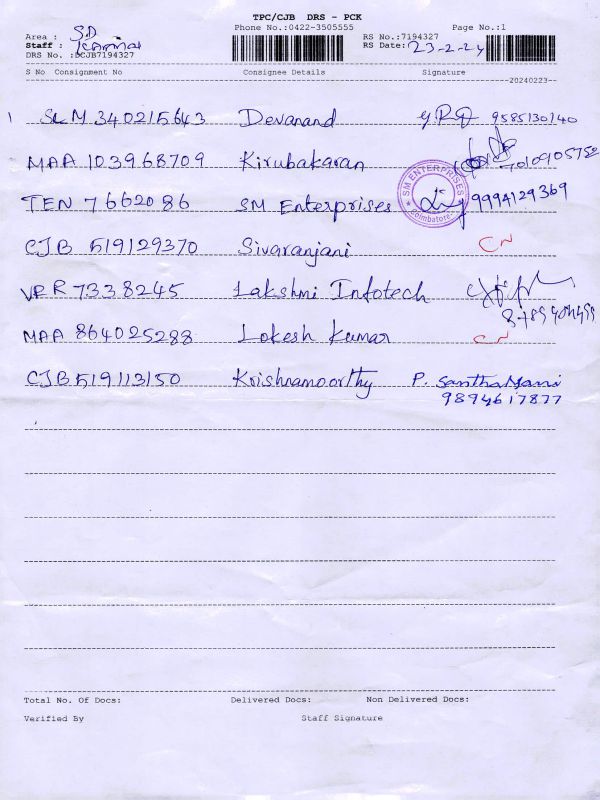 TPC/CJB DRS - PCK
Phone No.:0422-3505555 Page No.:1
Area : SD RS No.:7194327
Staff : RS Date: 23-2-24
DRS No. :DCJB7194327
S No Consignment No Consignee Details Signature
20240223
1 SLM 340215643 Devanand 9585130140
MAA 103968709 Kirubakaran 7010905750
TEN 7662086 SM Enterprises 9994129369
SM ENTERPRISES
Coimbatore
CJB 519129370 Sivaranjani CN
VRR 7338245 Lakshmi Infotech
MAA 864025288 Lokesh Kumar CN
CJB 519113150 Krishnamoorthy P. SanthaMani
9894617877
Total No. Of Docs: Delivered Docs: Non Delivered Docs:
Verified By Staff Signature